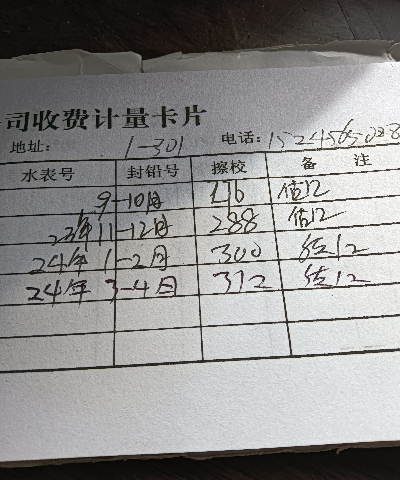 司收费计量卡片
地址: 1-301 电话:
水表号 封铅号 擦校 备 注
9-10月 276 估12
23年11-12月 288 估12
24年 1-2月 300 估12
24年 3-4月 312 估12